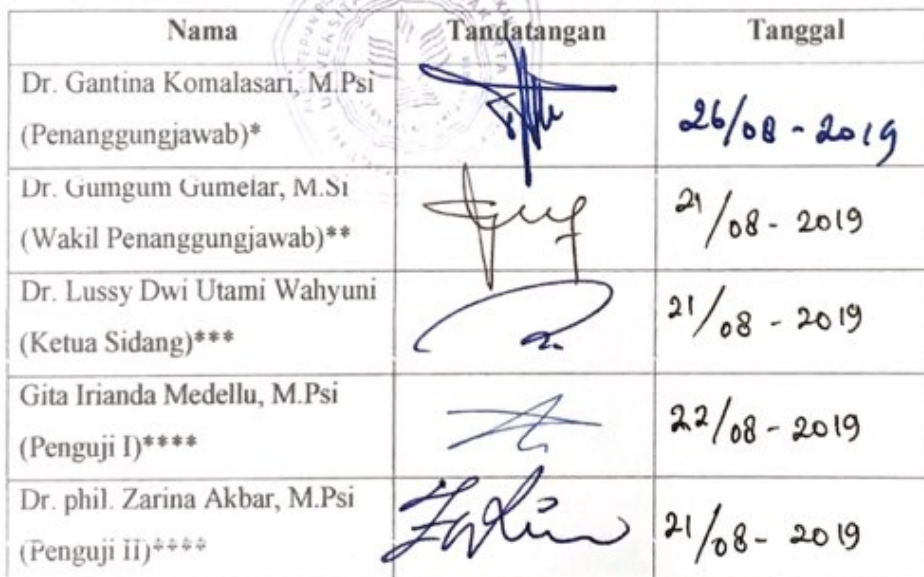 Nama Tandatangan Tanggal
Dr. Gantina Komalasari, M.Psi
(Penanggungjawab)* 26/08 - 2019
Dr. Gumgum Gumelar, M.Si
(Wakil Penanggungjawab)** 21/08 - 2019
Dr. Lussy Dwi Utami Wahyuni
(Ketua Sidang)*** 21/08 - 2019
Gita Irianda Medellu, M.Psi
(Penguji I)**** 22/08 - 2019
Dr. phil. Zarina Akbar, M.Psi
(Penguji II)**** 21/08 - 2019